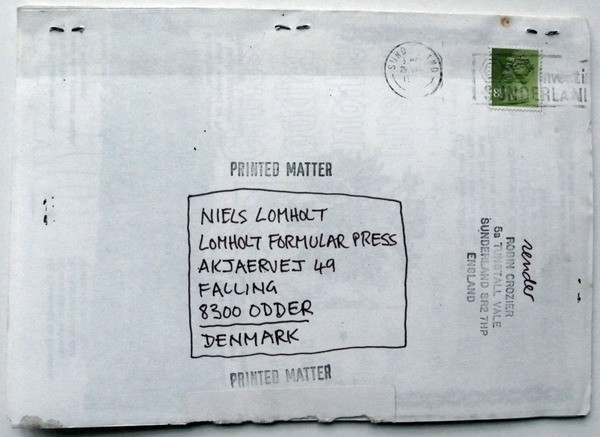 SUNDERLAND
8½
investi
SUNDERLAN
PRINTED MATTER
NIELS LOMHOLT
LOMHOLT FORMULAR PRESS
AKJAERVEJ 49
FALLING
8300 ODDER
DENMARK
PRINTED MATTER
sender
ROBIN CROZIER
5a TUNSTALL VALE
SUNDERLAND SR2 7HP
ENGLAND